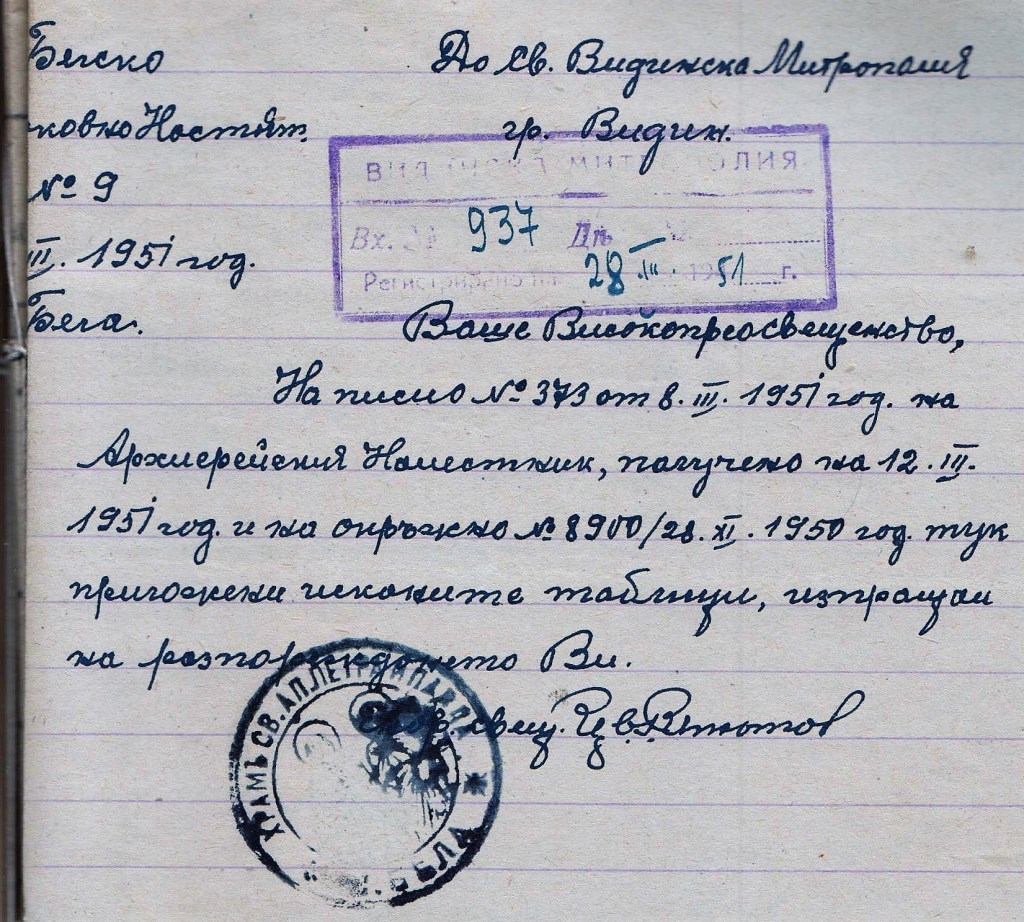 Бегско
До Св. Видинска Митрополия
ковно Настоят.
гр. Видин.
№ 9
ВИДИНСКА МИТРОПОЛИЯ
III. 1951 год.
Вх. № 937
28 III. 1951 г.
Регистрирано на
Бега.
Ваше Високопреосвещенство,
На писмо № 373 от 8. III. 1951 год. на
Архиерейския Наместник, получено на 12. III.
1951 год. и на окръжно № 8900/28. XI. 1950 год. тук
приложени исканите таблици, изпращам
на разпореждането Ви.
свещ. Цв.
ХРАМЪ СВ. АП. ПЕТРЪ И ПАВЕЛЪ